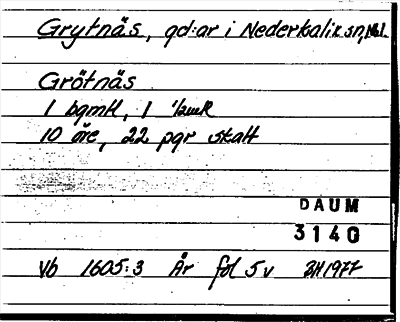 Grytnäs, gd:ar i Nederkalix sn, Nbl.
Grötnäs
1 bgmtl, 1
10 öre, 22 pgr skatt
DAUM
3140
Vb 1605:3 År fol 5v BH 1977